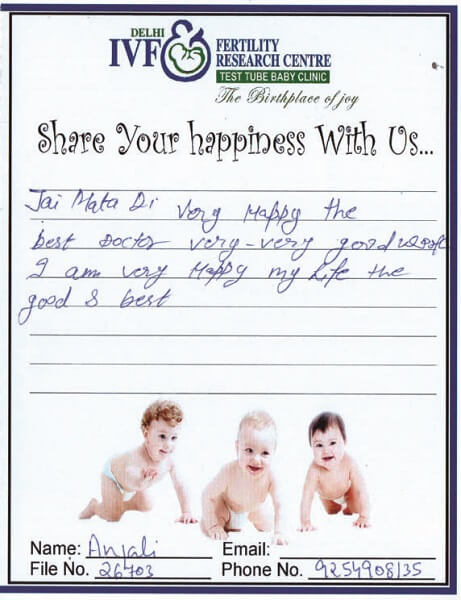 DELHI
IVF
FERTILITY
RESEARCH CENTRE
TEST TUBE BABY CLINIC
The Birthplace of joy
Share Your happiness With Us...
Jai Mata Di Very Happy the
best Doctor very-very good
I am very Happy my Life the
good & best
Name: Anjali Email:
File No. 26403 Phone No. 9254908135